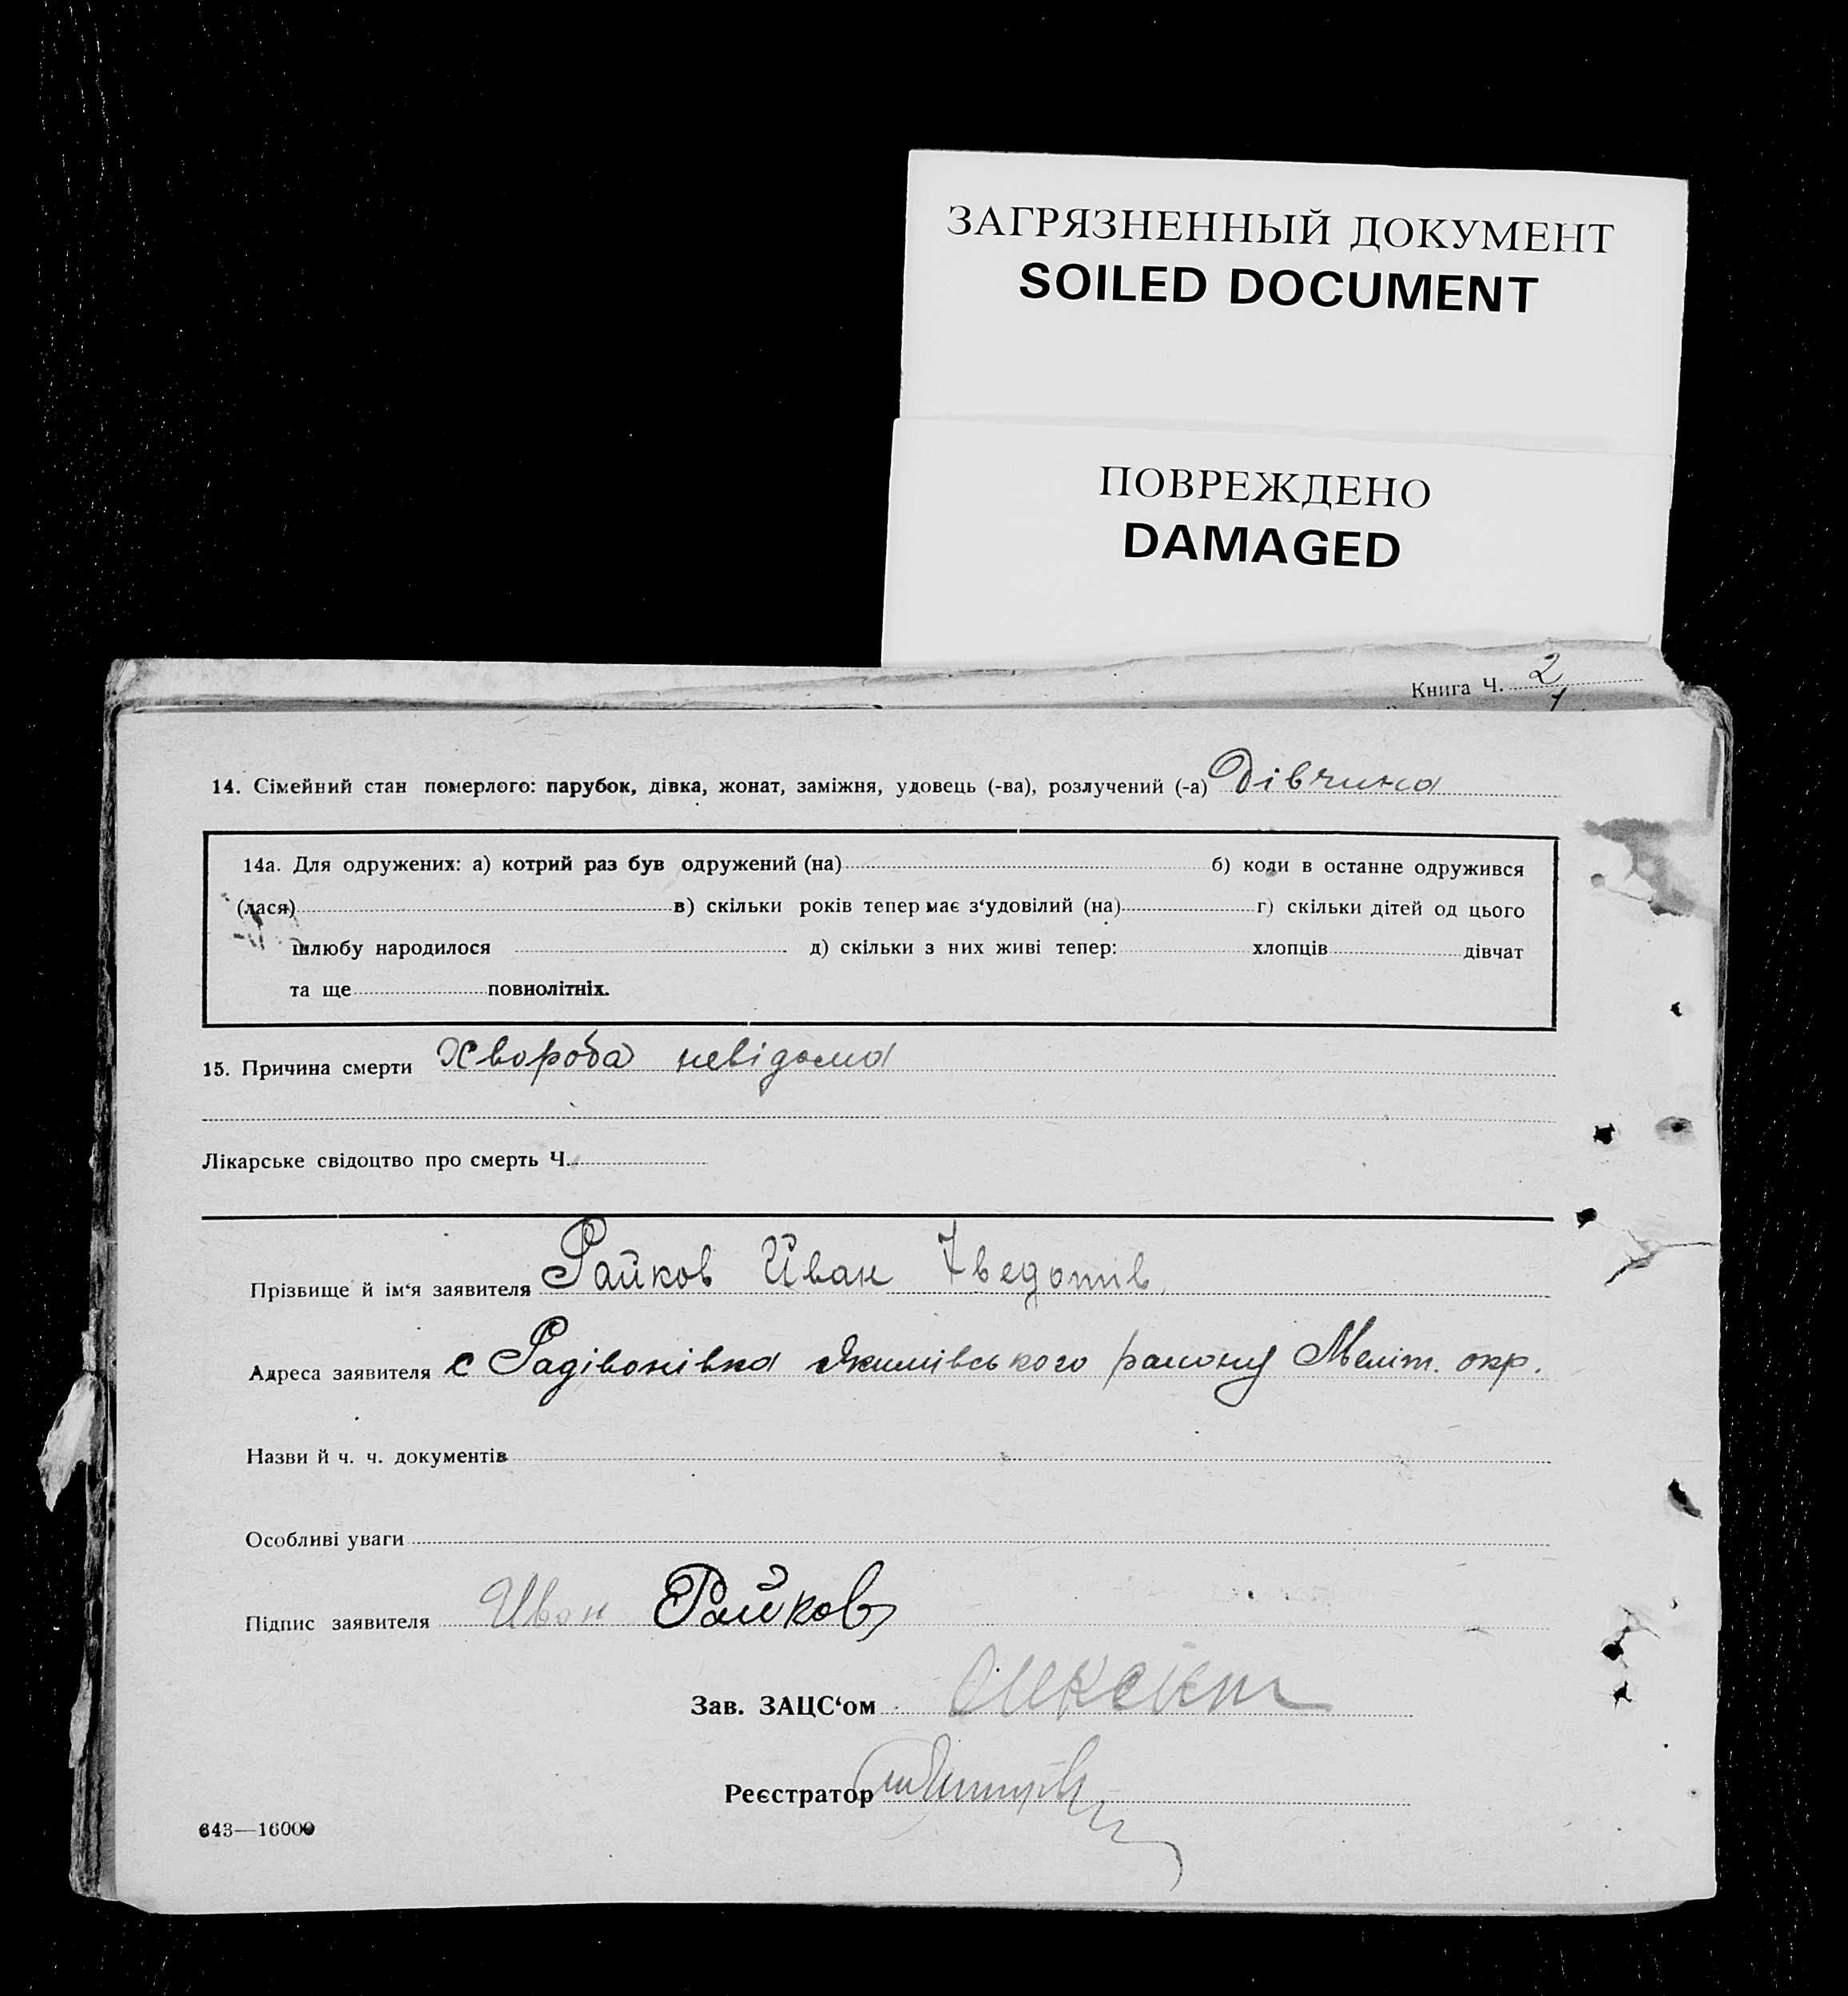 ЗАГРЯЗНЕННЫЙ ДОКУМЕНТ
SOILED DOCUMENT
ПОВРЕЖДЕНО
DAMAGED
Книга Ч. 2
14. Сімейний стан померлого: парубок, дівка, жонат, заміжня, удовець (-ва), розлучений (-а) Дівчина
14а. Для одружених: а) котрий раз був одружений (на) б) коли в останне одружився
(лася) в) скільки років тепер має з‘удовілий (на) г) скільки дітей од цього
шлюбу народилося д) скільки з них живі тепер: хлопців дівчат
та ще повнолітніх.
15. Причина смерти Хвороба невідома
Лікарське свідоцтво про смерть Ч.
Прізвище й ім‘я заявителя Райков Йван
Адреса заявителя с Радівонівка Якимівського району Меліт. окр.
Назви й ч. ч. документів
Особливі уваги
Підпис заявителя Иван Райков
Зав. ЗАЦС‘ом
Реєстратор
643—16000